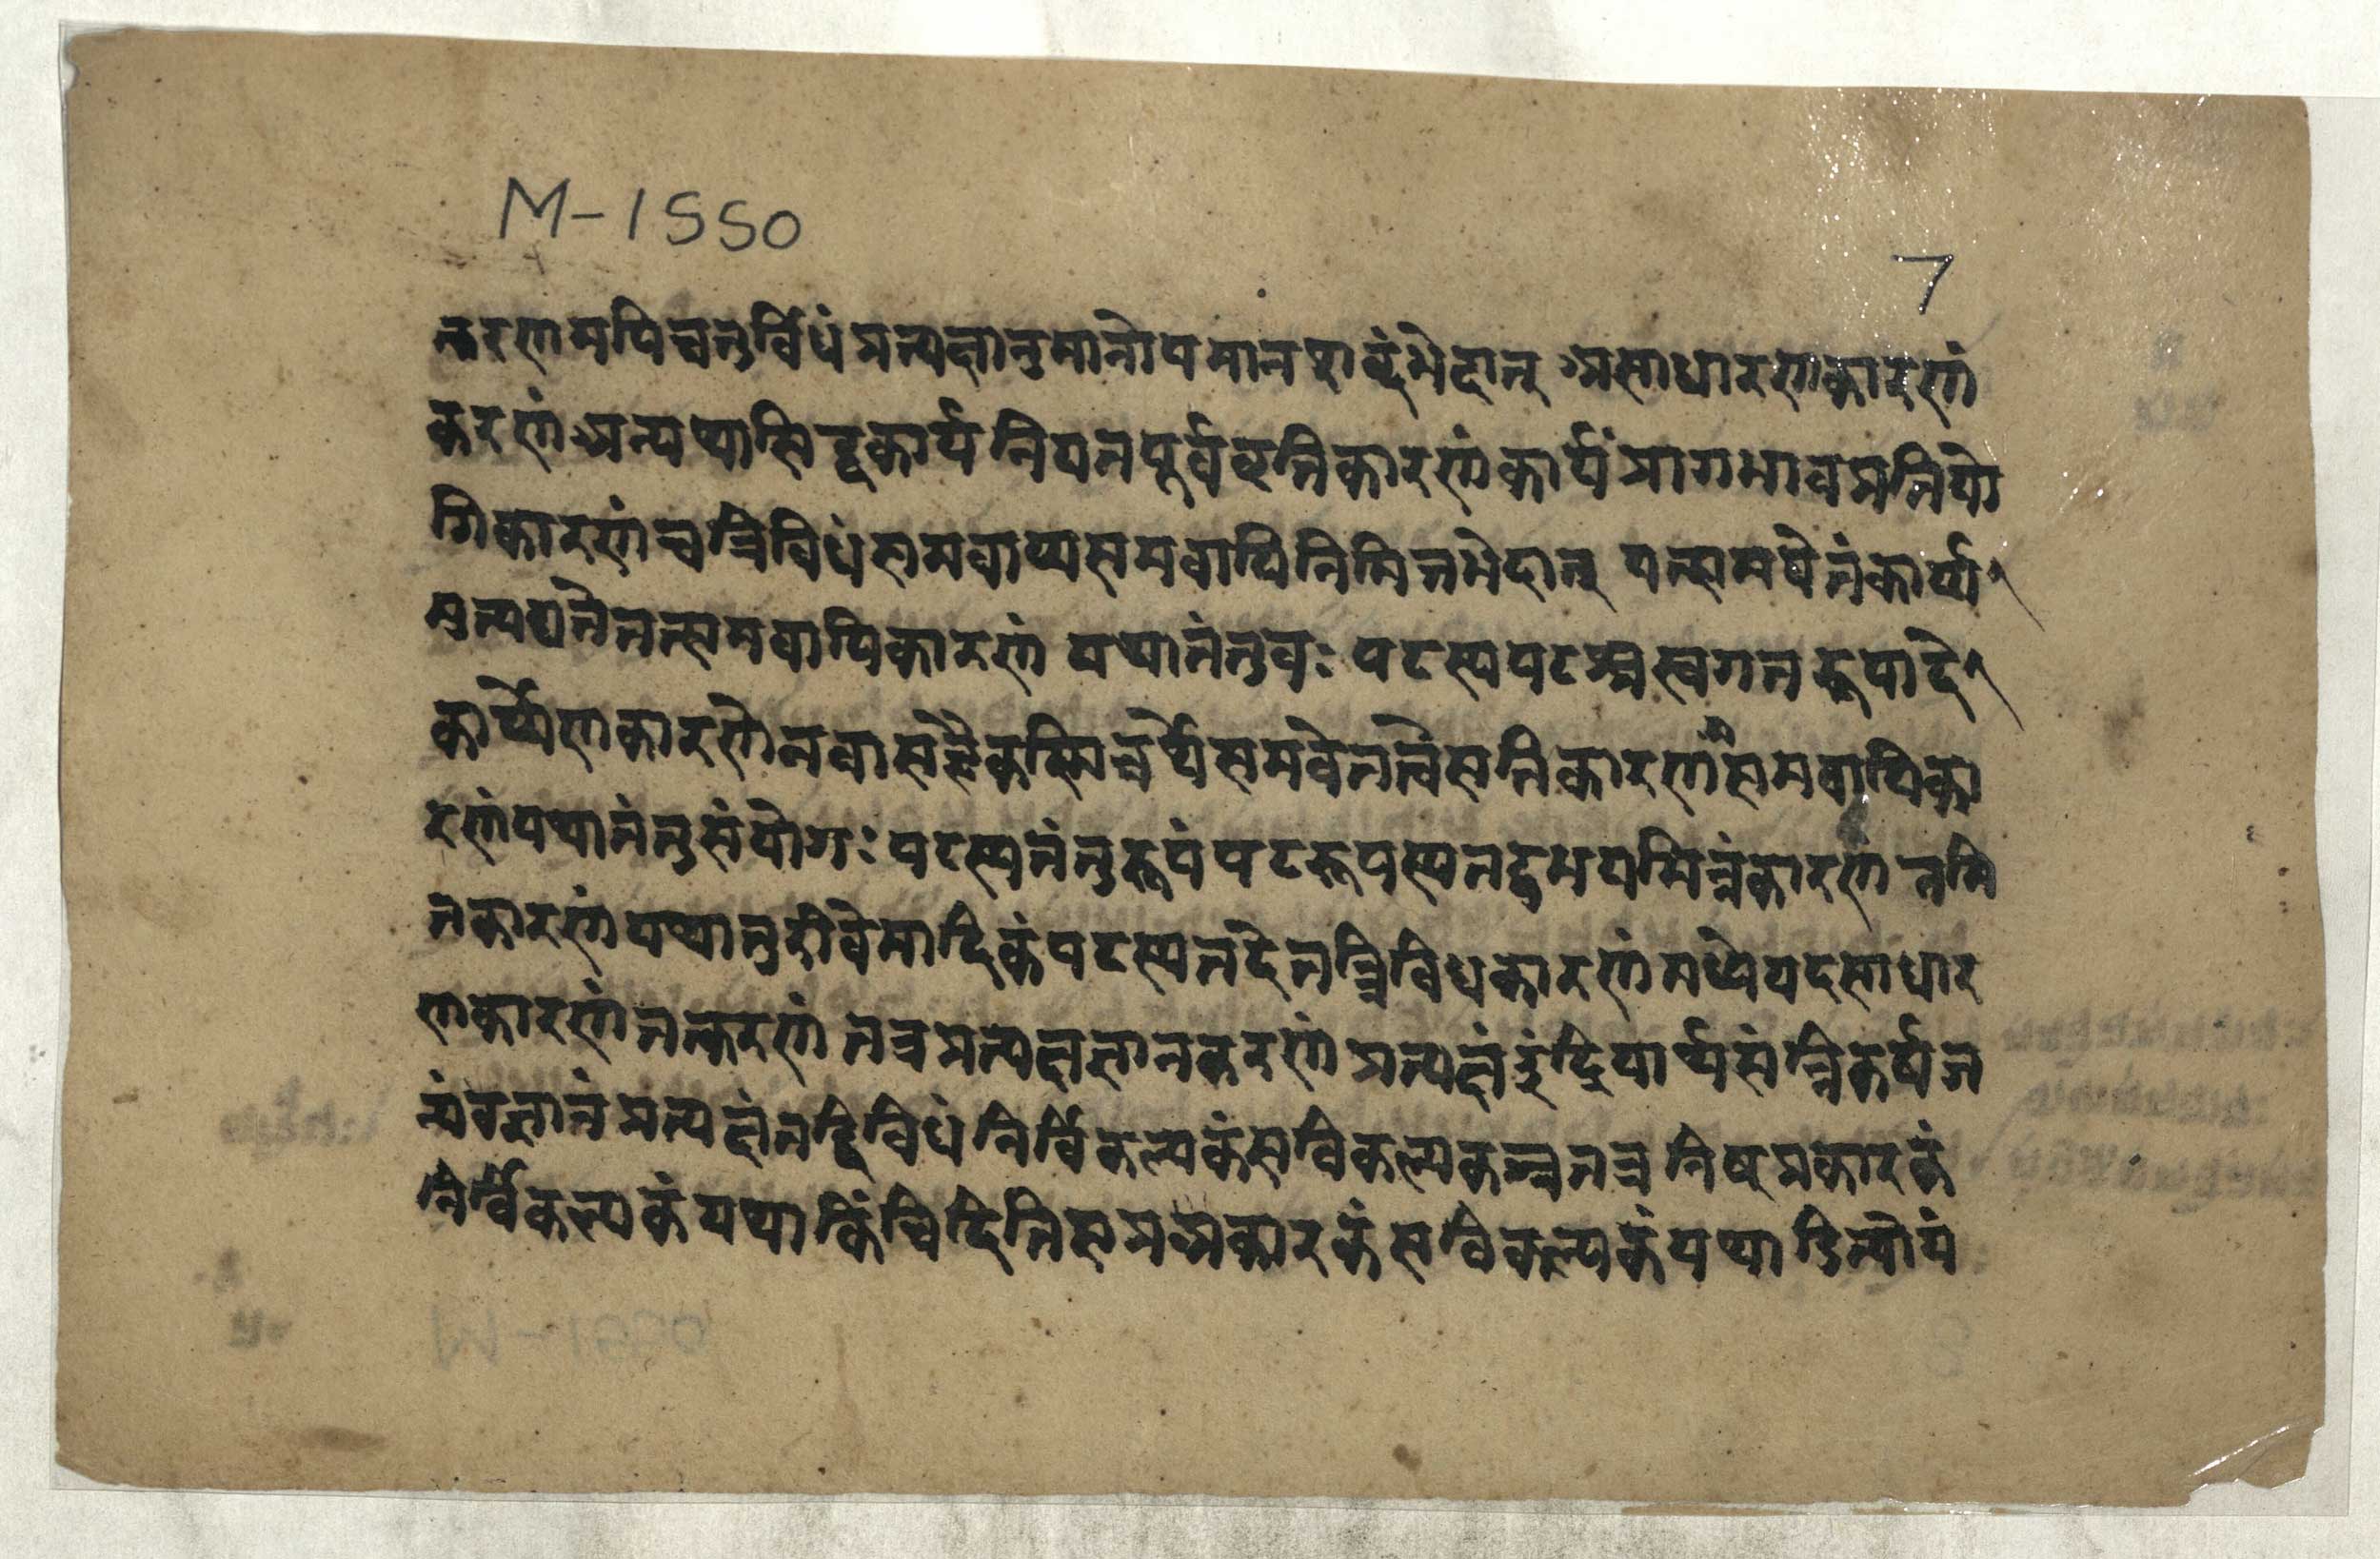 M-1550
7
त्करणमपिचतुर्विधंप्रत्यक्षानुमानोपमानशाव्दंभेदात् असाधारणकारणं
करणं अन्यथासिद्धकार्यनियतपूर्ववृत्तिकारणंकार्यंप्रागभावप्रतियो
गिकारणंचत्रिविधंसमवाय्यसमवायिनिमित्तभेदात् यत्समवेतंकार्य्य
मुत्पद्यतेतत्समवायिकारणं यथातंतुवः पटस्यपटश्चस्वगतरूपादे
कार्य्येणकारणेनवासहैकस्मिन्नर्थेसमवेतत्वेसतिकारणंसमवायिका
रणंयथातंतुसंयोगः पटस्यतंतुरूपंपटरूपस्यतदुभयभिन्नंकारणं नमि
तकारणंयथातुरीवेमादिकंपटस्यतदेतत्त्रिविधकारणंमध्येयदसाधार
णकारणंतत्करणं तत्रप्रत्यक्षज्ञानकरणं प्रत्यक्षंइंद्रियार्थसंन्निकर्षज
न्यंवज्ञानंप्रत्यक्षंतद्विविधं निर्विकल्पकंसविकल्पकञ्चतत्र निष्प्रकारकं
निर्विकल्पकंयथाकिंचिदितिसप्रप्रकारकंसविकल्पकंयथाडित्योयं